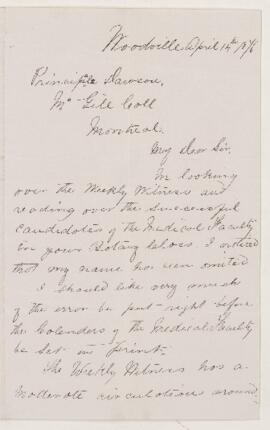 Woodville April 14th 1876
Principle Dawson,
Mc Gill Coll
Montreal.
My Dear Sir.
In looking
over the Weekly Witness and
reading over the successful
candidates of the Medical Faculty
in your Botany Class. I noticed
that my name has been omited
I should like very much
if the error be put right before
the Calenders of the Medical Faculty
be set in print.
The Weekly Witness has a
moderate circulation around